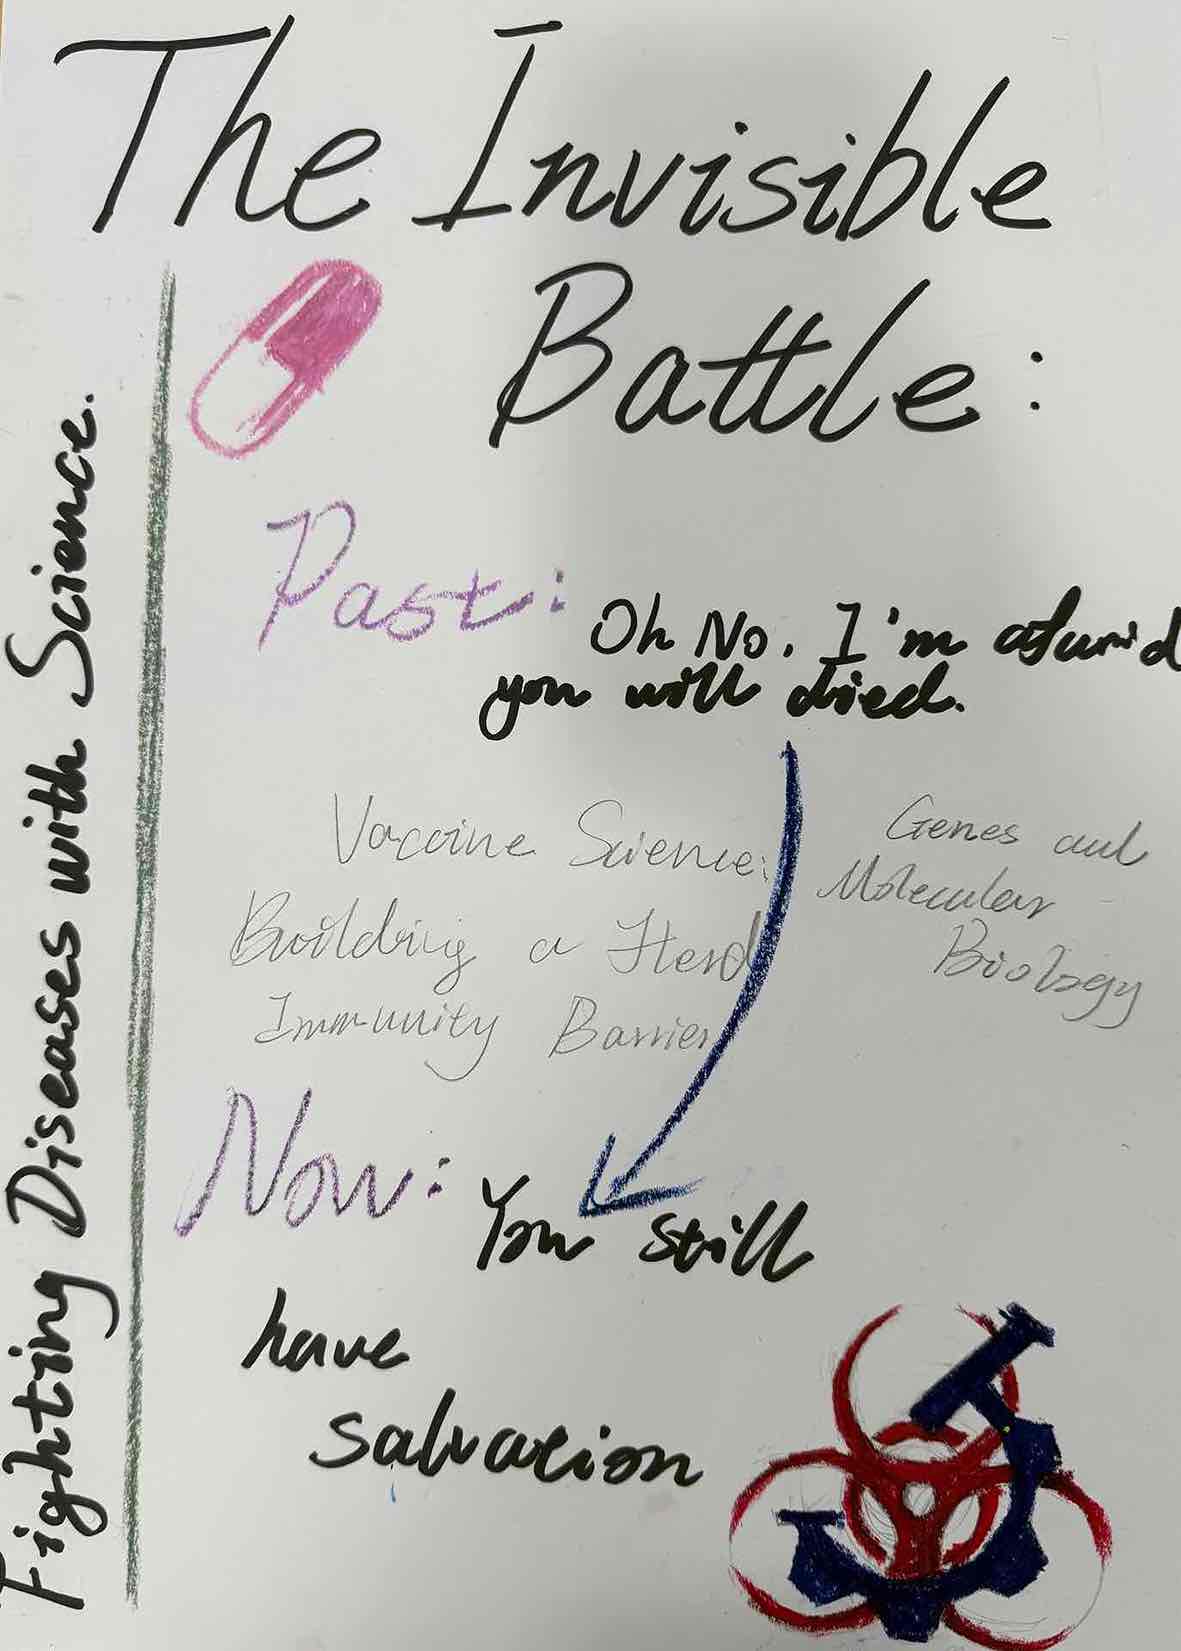 The Invisible
Battle:
Fighting Diseases with Science.
Past:
Oh No. I'm afarid
you will died.
Vaccine Science:
Building a Herd
Immunity Barrier
Genes and
Molecular
Biology
Now: You still
have
salvation